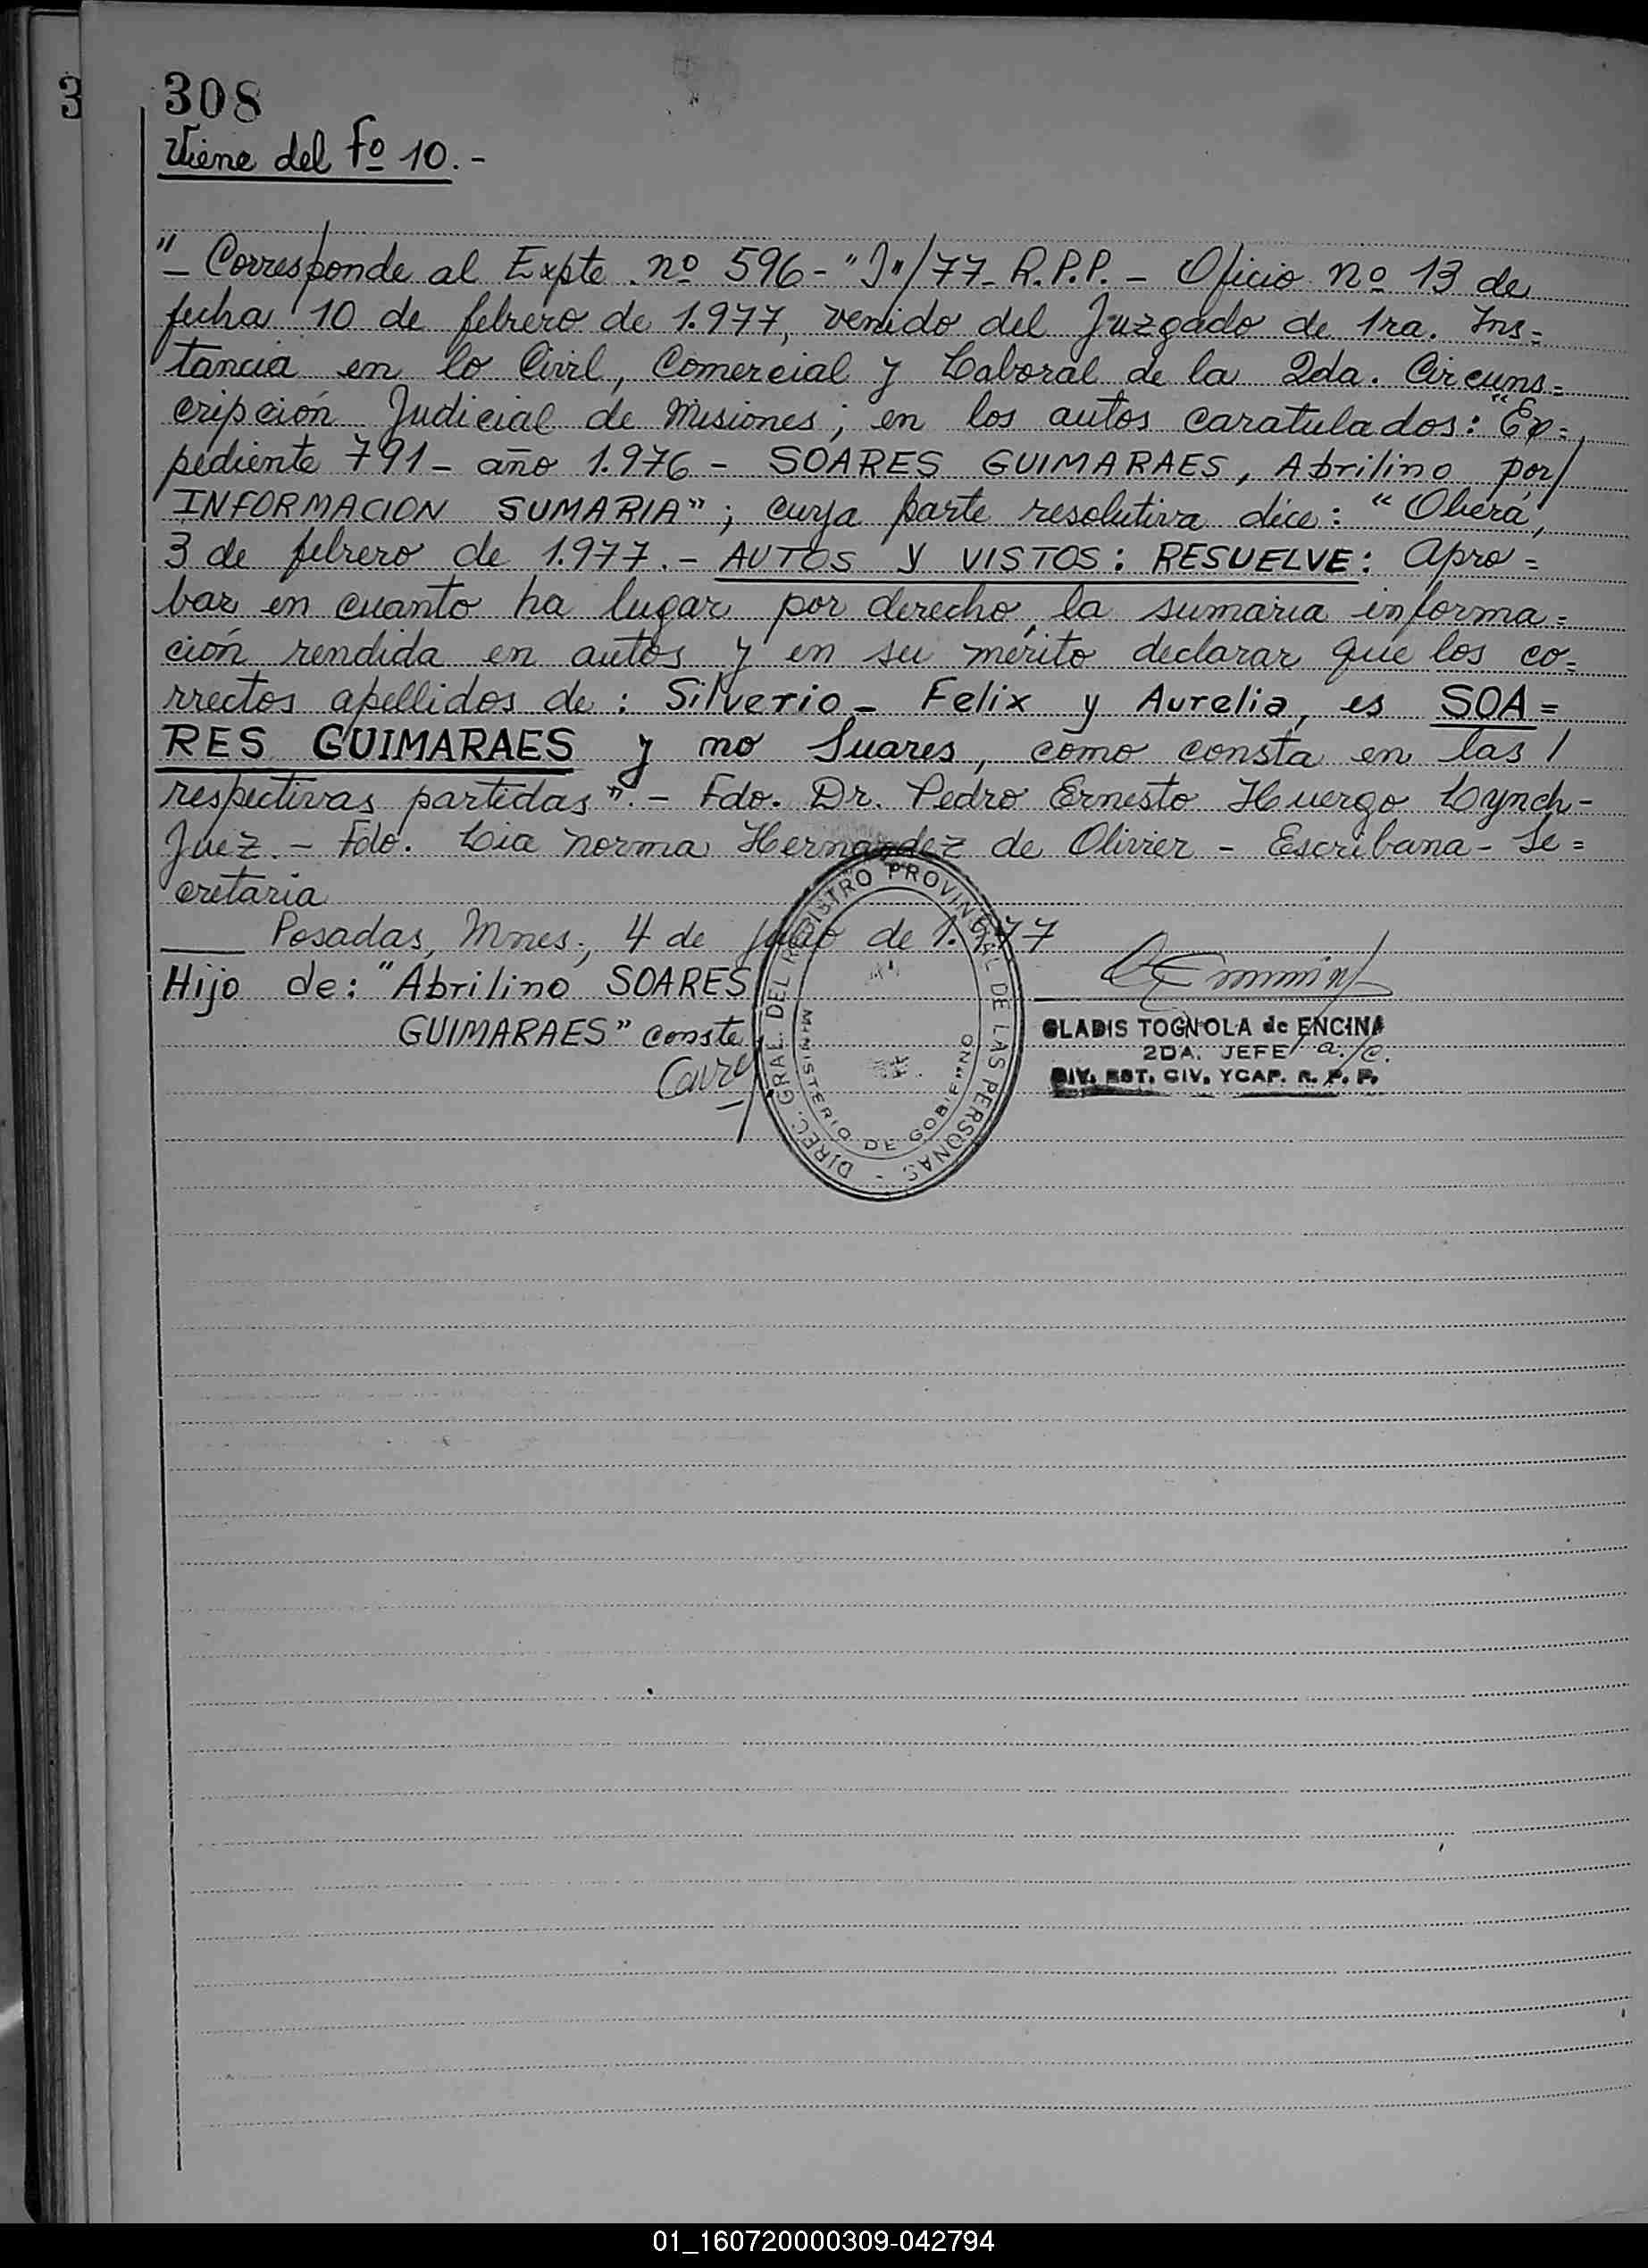 3
308
Viene del Fº 10.-
"- Corresponde al Expte. nº 596-"J"/77- R.P.P. - Oficio nº 13 de
fecha 10 de febrero de 1.977, venido del Juzgado de 1ra. Ins=
tancia en lo Civil, Comercial y Laboral de la 2da. Circuns=
cripción Judicial de Misiones; en los autos caratulados: "Ex=
pediente 791- año 1.976 - SOARES GUIMARAES, Abrilino por/
INFORMACION SUMARIA"; cuya parte resolutiva dice: "Oberá,
3 de febrero de 1.977.- AUTOS Y VISTOS: RESUELVE: Apro=
bar en cuanto ha lugar por derecho, la sumaria informa=
ción rendida en autos y en su mérito declarar que los co=
rrectos apellidos de: Silverio - Felix y Aurelia, es SOA=
RES GUIMARAES y no Suares, como consta en las /
respectivas partidas".- Fdo. Dr. Pedro Ernesto Huergo Lynch-
Juez.- Fdo. Lia Norma Hernandez de Olivier - Escribana - Se=
cretaria
Posadas, Mnes., 4 de de 1.977
Hijo de: "Abrilino SOARES
GUIMARAES" conste
DIREC. GRAL. DEL REGISTRO PROVINCIAL DE LAS PERSONAS -
MINISTERIO DE GOBIERNO
GLADIS TOGNOLA de ENCINA
2DA. JEFE a/c.
DIV. EST. CIV. YCAP. R. P. P.
01_160720000309-042794